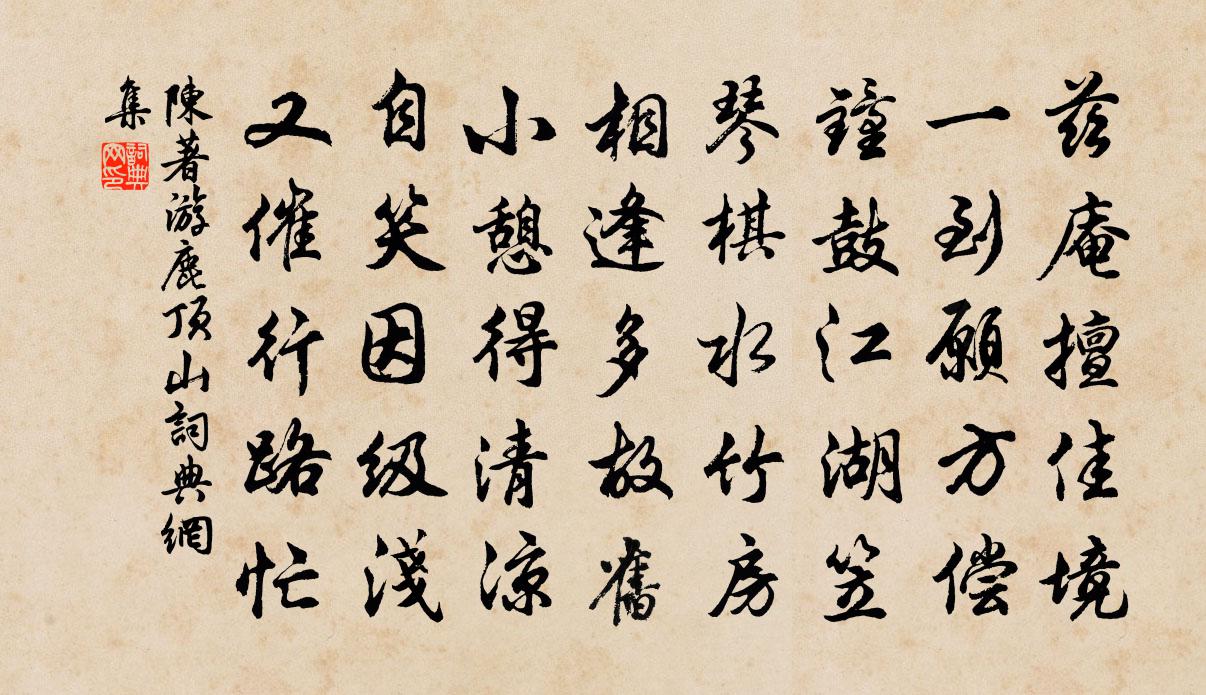 兹庵擅佳境
一到願方偿
鐘鼓江湖笠
琴棋水竹房
相逢多故舊
小憩得清凉
自笑因级淺
又催行路忙
陳著游鹿頂山詞典網
集
詞典網印